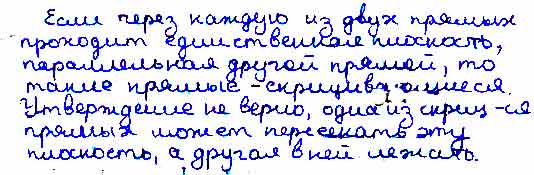 Если через каждую из двух прямых
проходит единственная плоскость,
параллельная другой прямой, то
такие прямые - скрещивающиеся.
Утверждение не верно, одна из скрещ-ся
прямых может пересекать эту
плоскость, а другая в ней лежать.